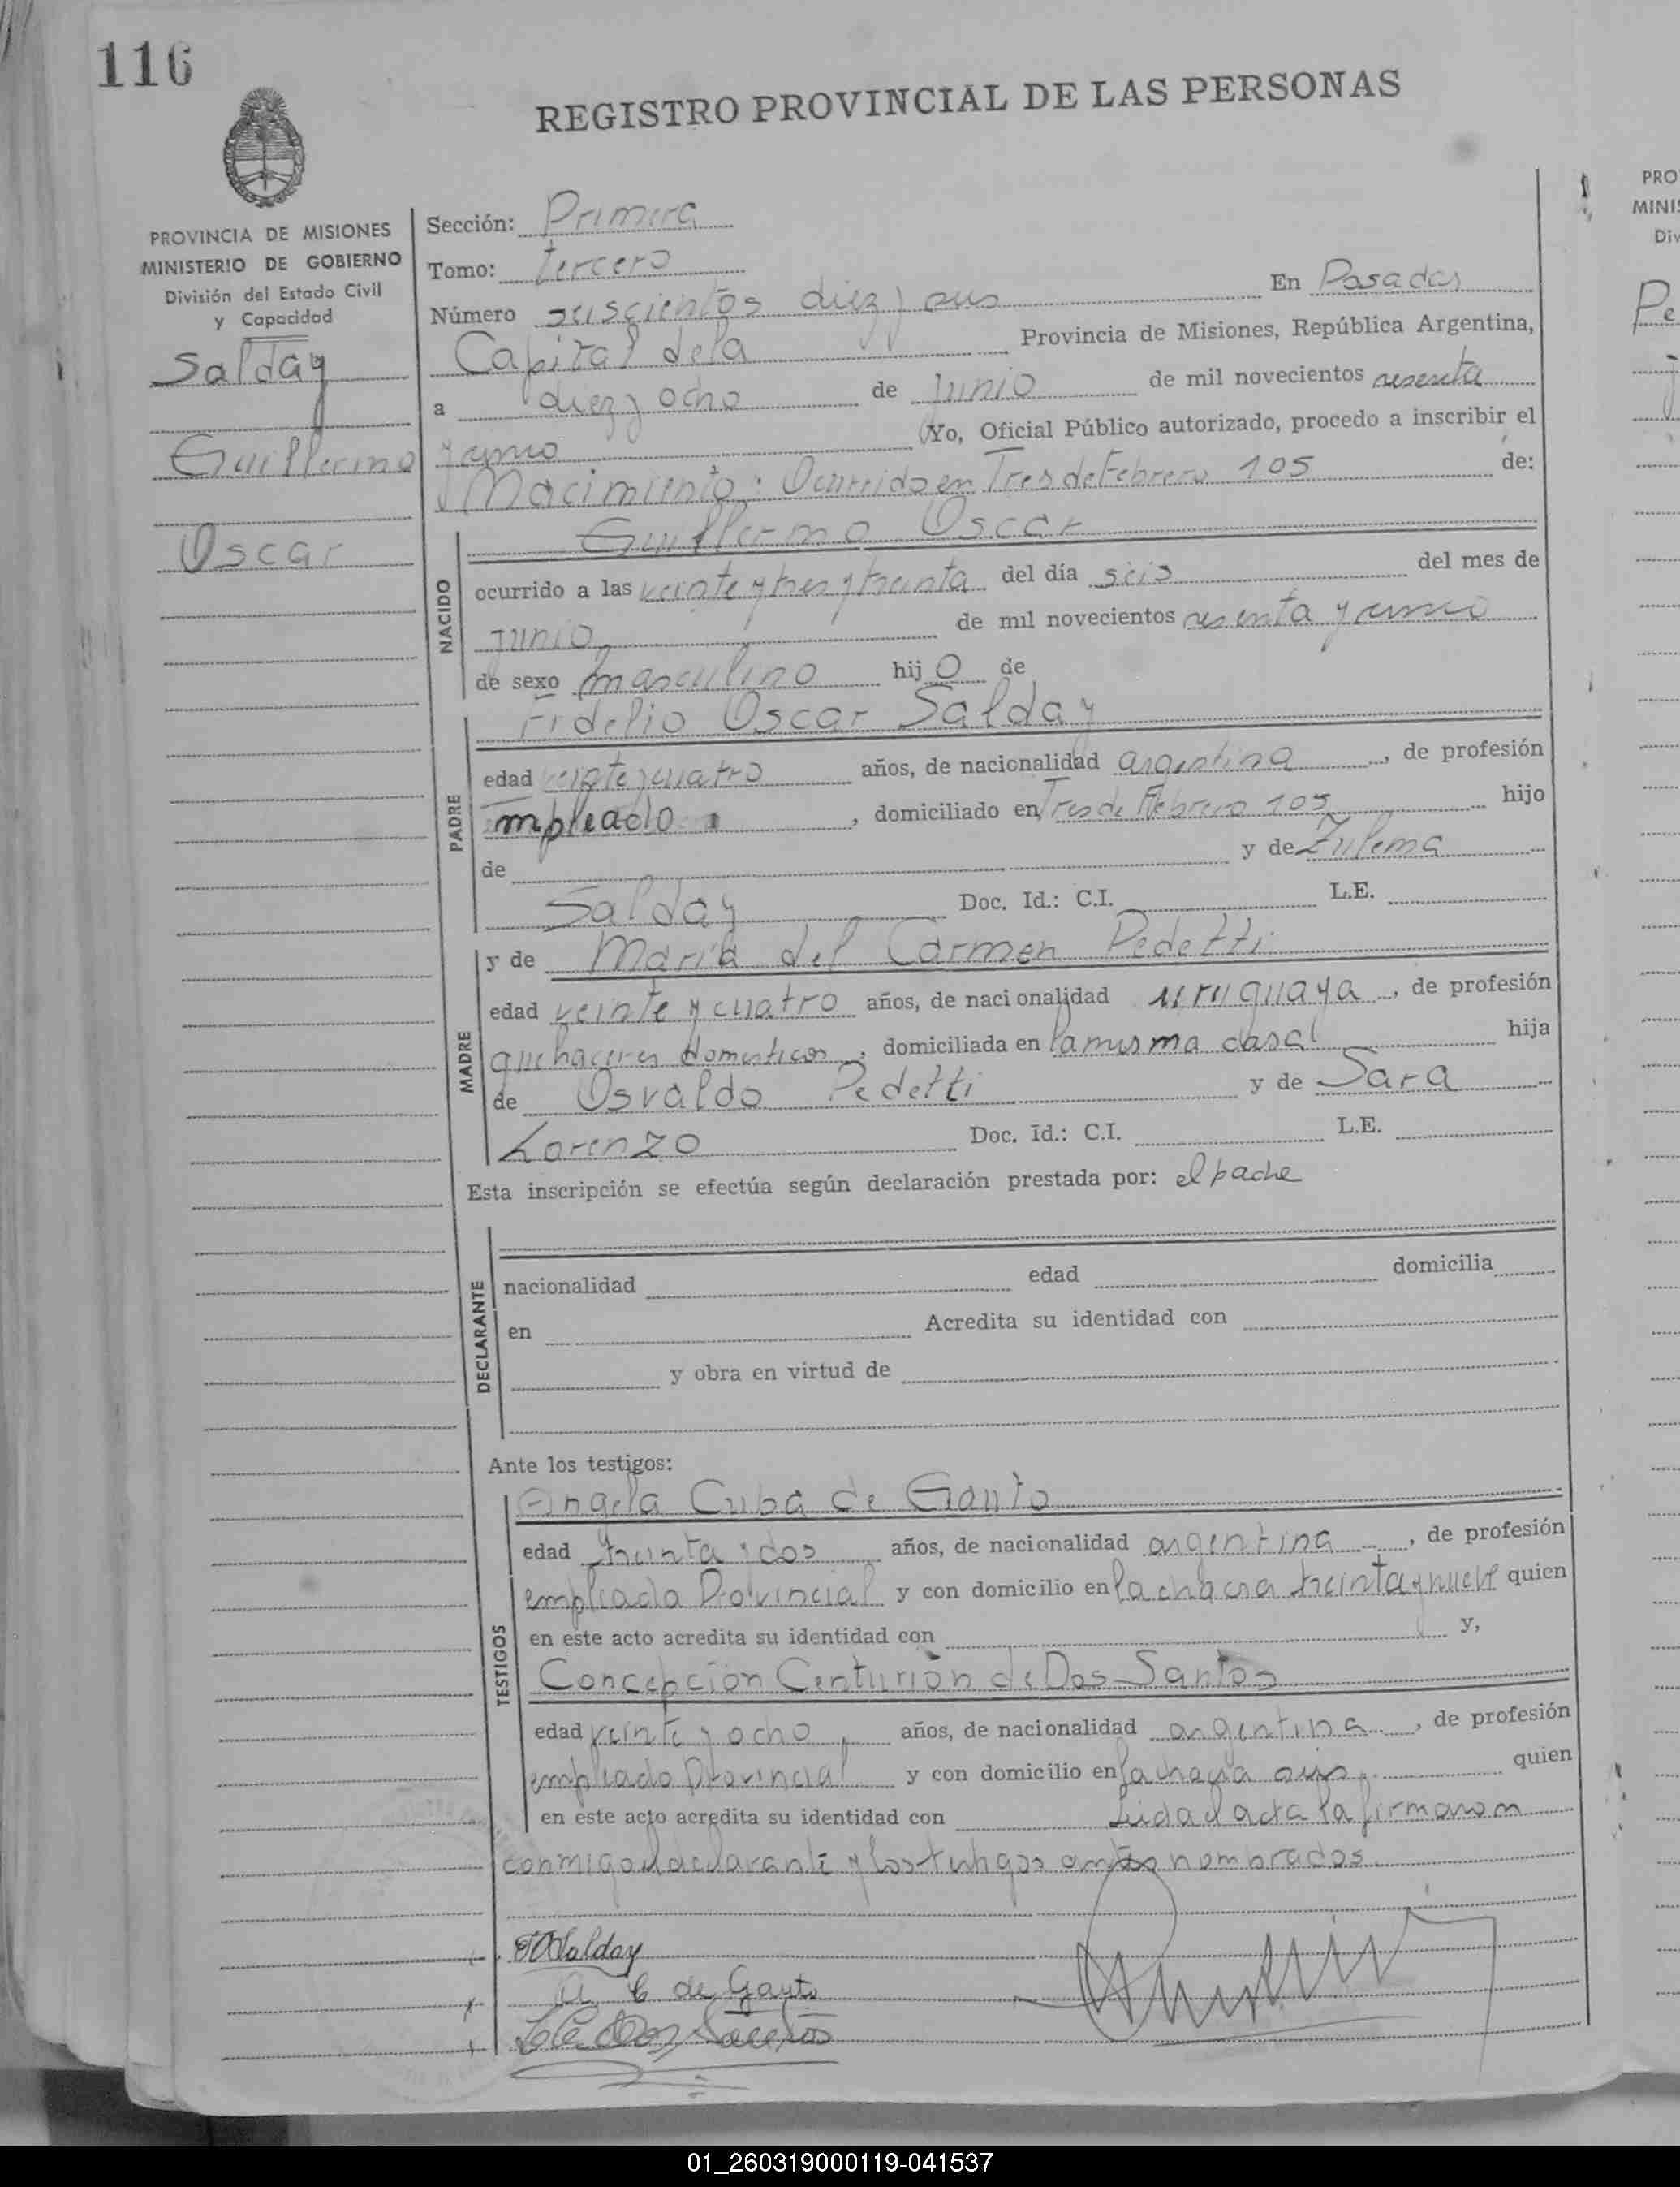 116
REGISTRO PROVINCIAL DE LAS PERSONAS
PROVINCIA DE MISIONES
MINISTERIO DE GOBIERNO
División del Estado Civil
y Capacidad
Salday
Guillermo
Oscar
Sección: Primera
Tomo: tercero
Número seiscientos diez y seis En Posadas
Capital de la Provincia de Misiones, República Argentina,
a diez y ocho de Junio de mil novecientos sesenta
y uno Yo, Oficial Público autorizado, procedo a inscribir el
Nacimiento: Ocurrido en Tres de Febrero 105 de:
NACIDO
Guillermo Oscar
ocurrido a las veinte y tres y treinta del día seis del mes de
junio de mil novecientos sesenta y uno
de sexo masculino hijo de
PADRE
Fidelio Oscar Salday
edad veinte y cuatro años, de nacionalidad argentina, de profesión
empleado, domiciliado en Tres de Febrero 105 hijo
de y de Zulema
Salday Doc. Id.: C.I. L.E.
MADRE
y de María del Carmen Pedetti
edad veinte y cuatro años, de nacionalidad uruguaya, de profesión
quehaceres domesticos, domiciliada en la misma casa hija
de Osvaldo Pedetti y de Sara
Lorenzo Doc. Id.: C.I. L.E.
Esta inscripción se efectúa según declaración prestada por: el padre
DECLARANTE
nacionalidad edad domicilia
en Acredita su identidad con
y obra en virtud de
Ante los testigos:
TESTIGOS
Angela Cuba de Gauto
edad treinta y dos años, de nacionalidad argentina, de profesión
empleada Provincial y con domicilio en la chacra treinta y nueve quien
en este acto acredita su identidad con y,
Concepción Centurión de Dos Santos
edad veinte y ocho, años, de nacionalidad argentina, de profesión
empleado Provincial y con domicilio en quien
en este acto acredita su identidad con Leida el acta la firmaron
conmigo el declarante y los testigos antes nombrados
Salday
A C de Gauto
de Dos Santos
PRO
MINIS
Div
Pe
01_260319000119-041537